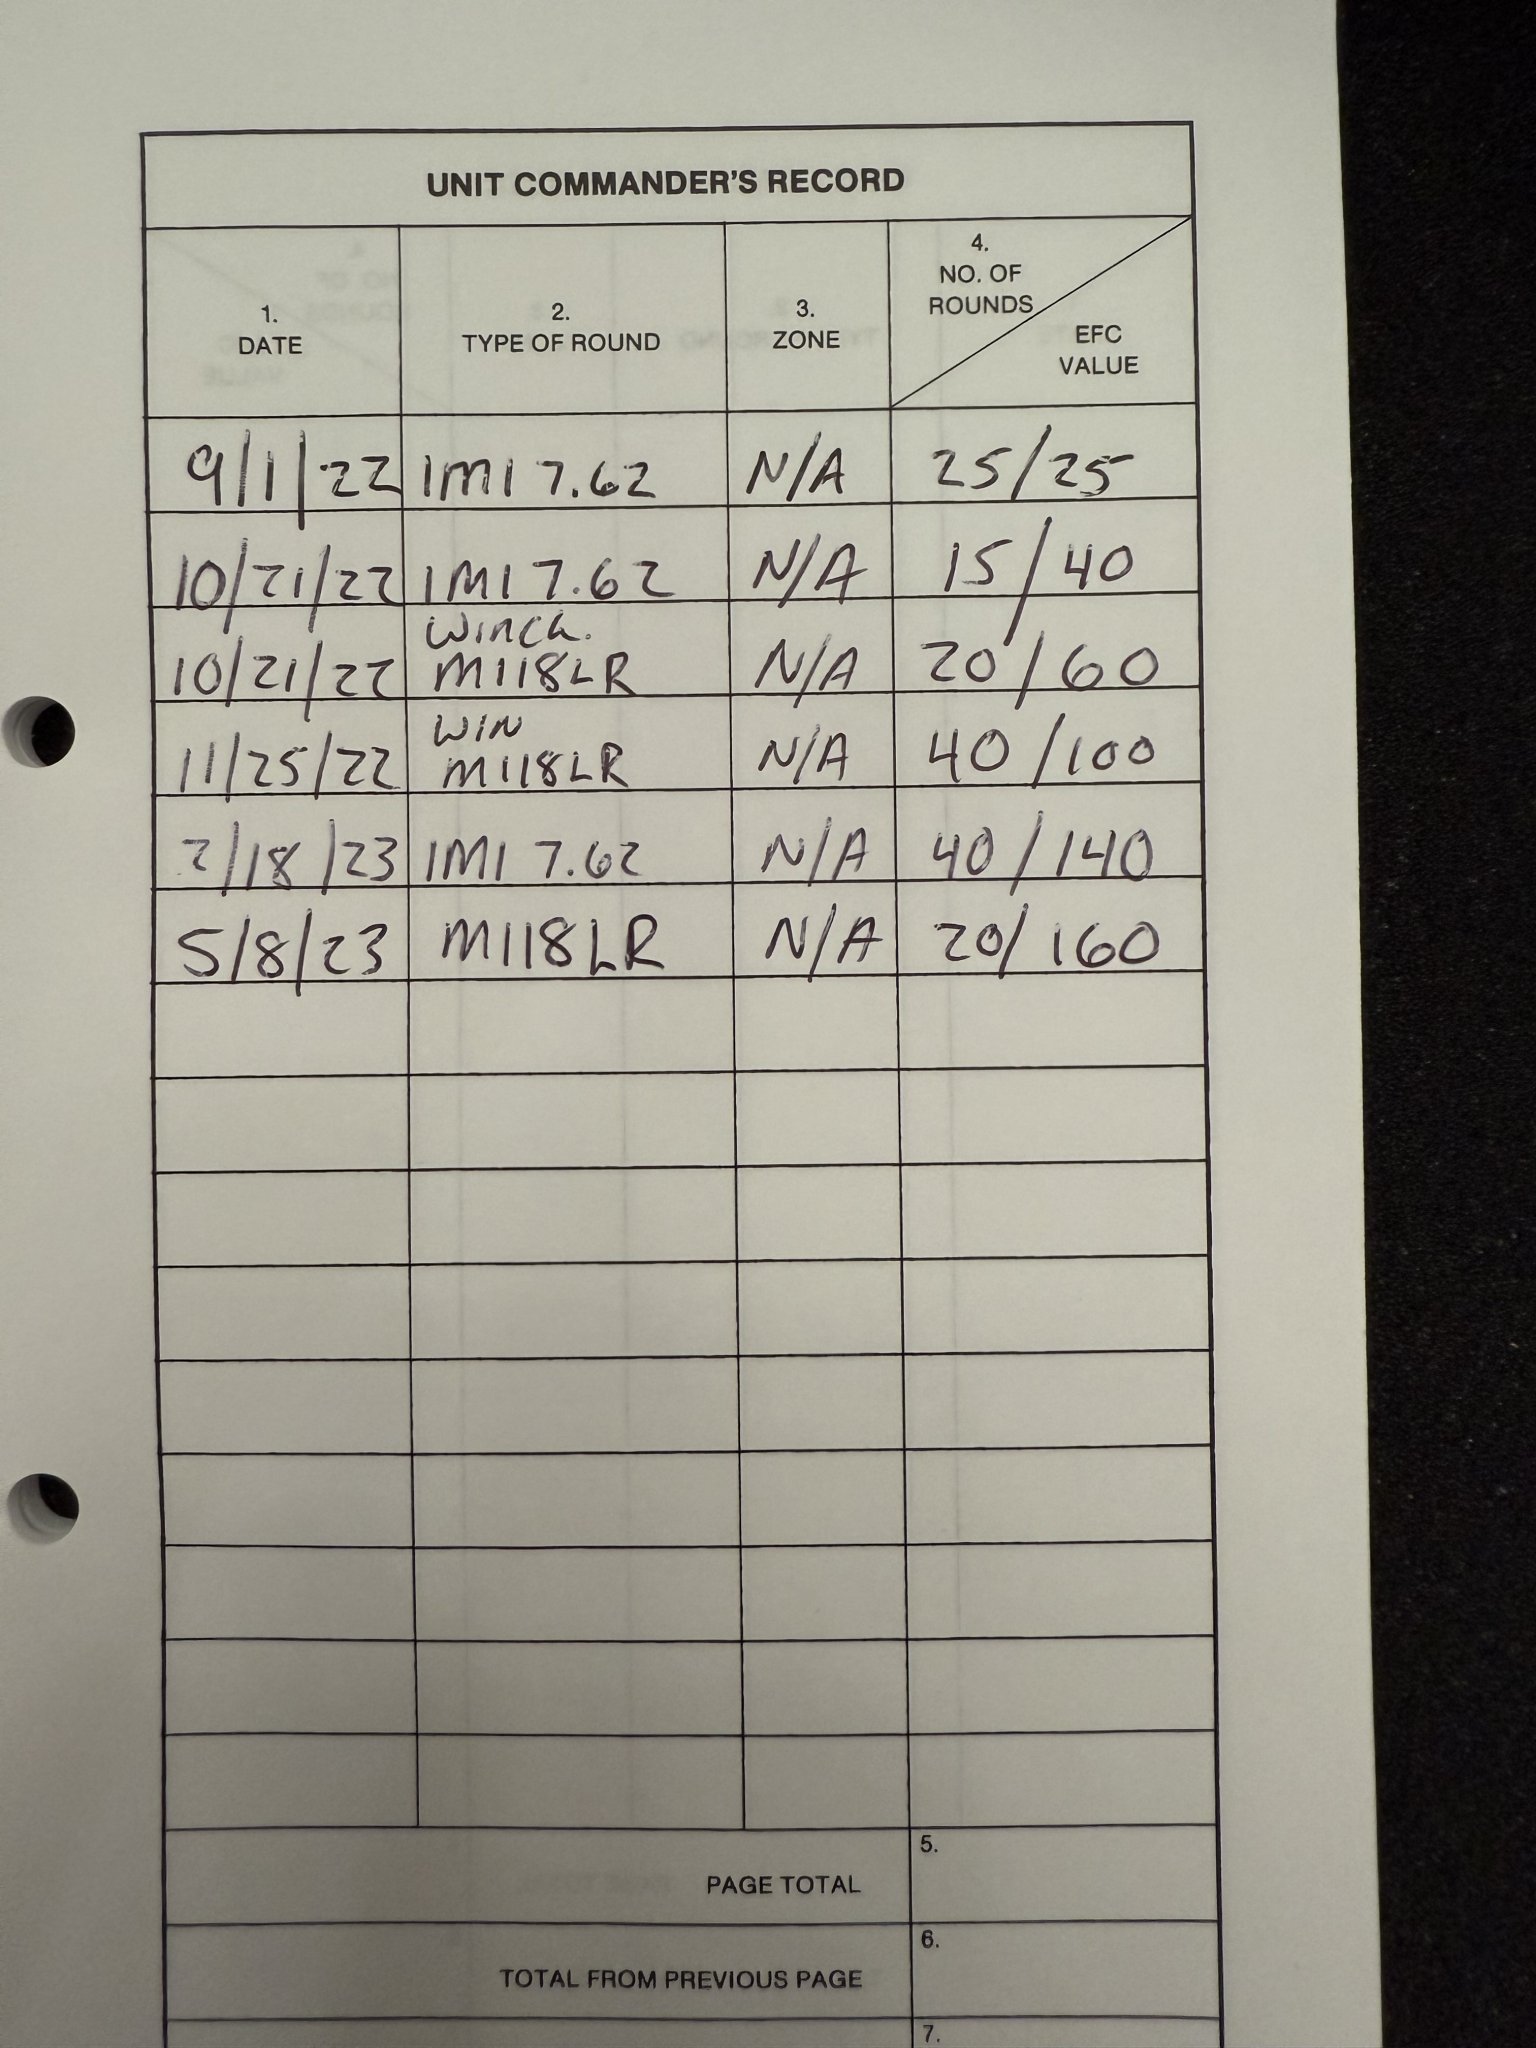 UNIT COMMANDER'S RECORD
1.
DATE
2.
TYPE OF ROUND
3.
ZONE
4.
NO. OF
ROUNDS
EFC
VALUE
9/1/22 IMI 7.62 N/A 25/25
10/21/22 IMI 7.62 N/A 15/40
WINCH.
10/21/22 M118LR N/A 20/60
WIN
11/25/22 M118LR N/A 40/100
2/18/23 IMI 7.62 N/A 40/140
5/8/23 M118LR N/A 20/160
5.
PAGE TOTAL
6.
TOTAL FROM PREVIOUS PAGE
7.